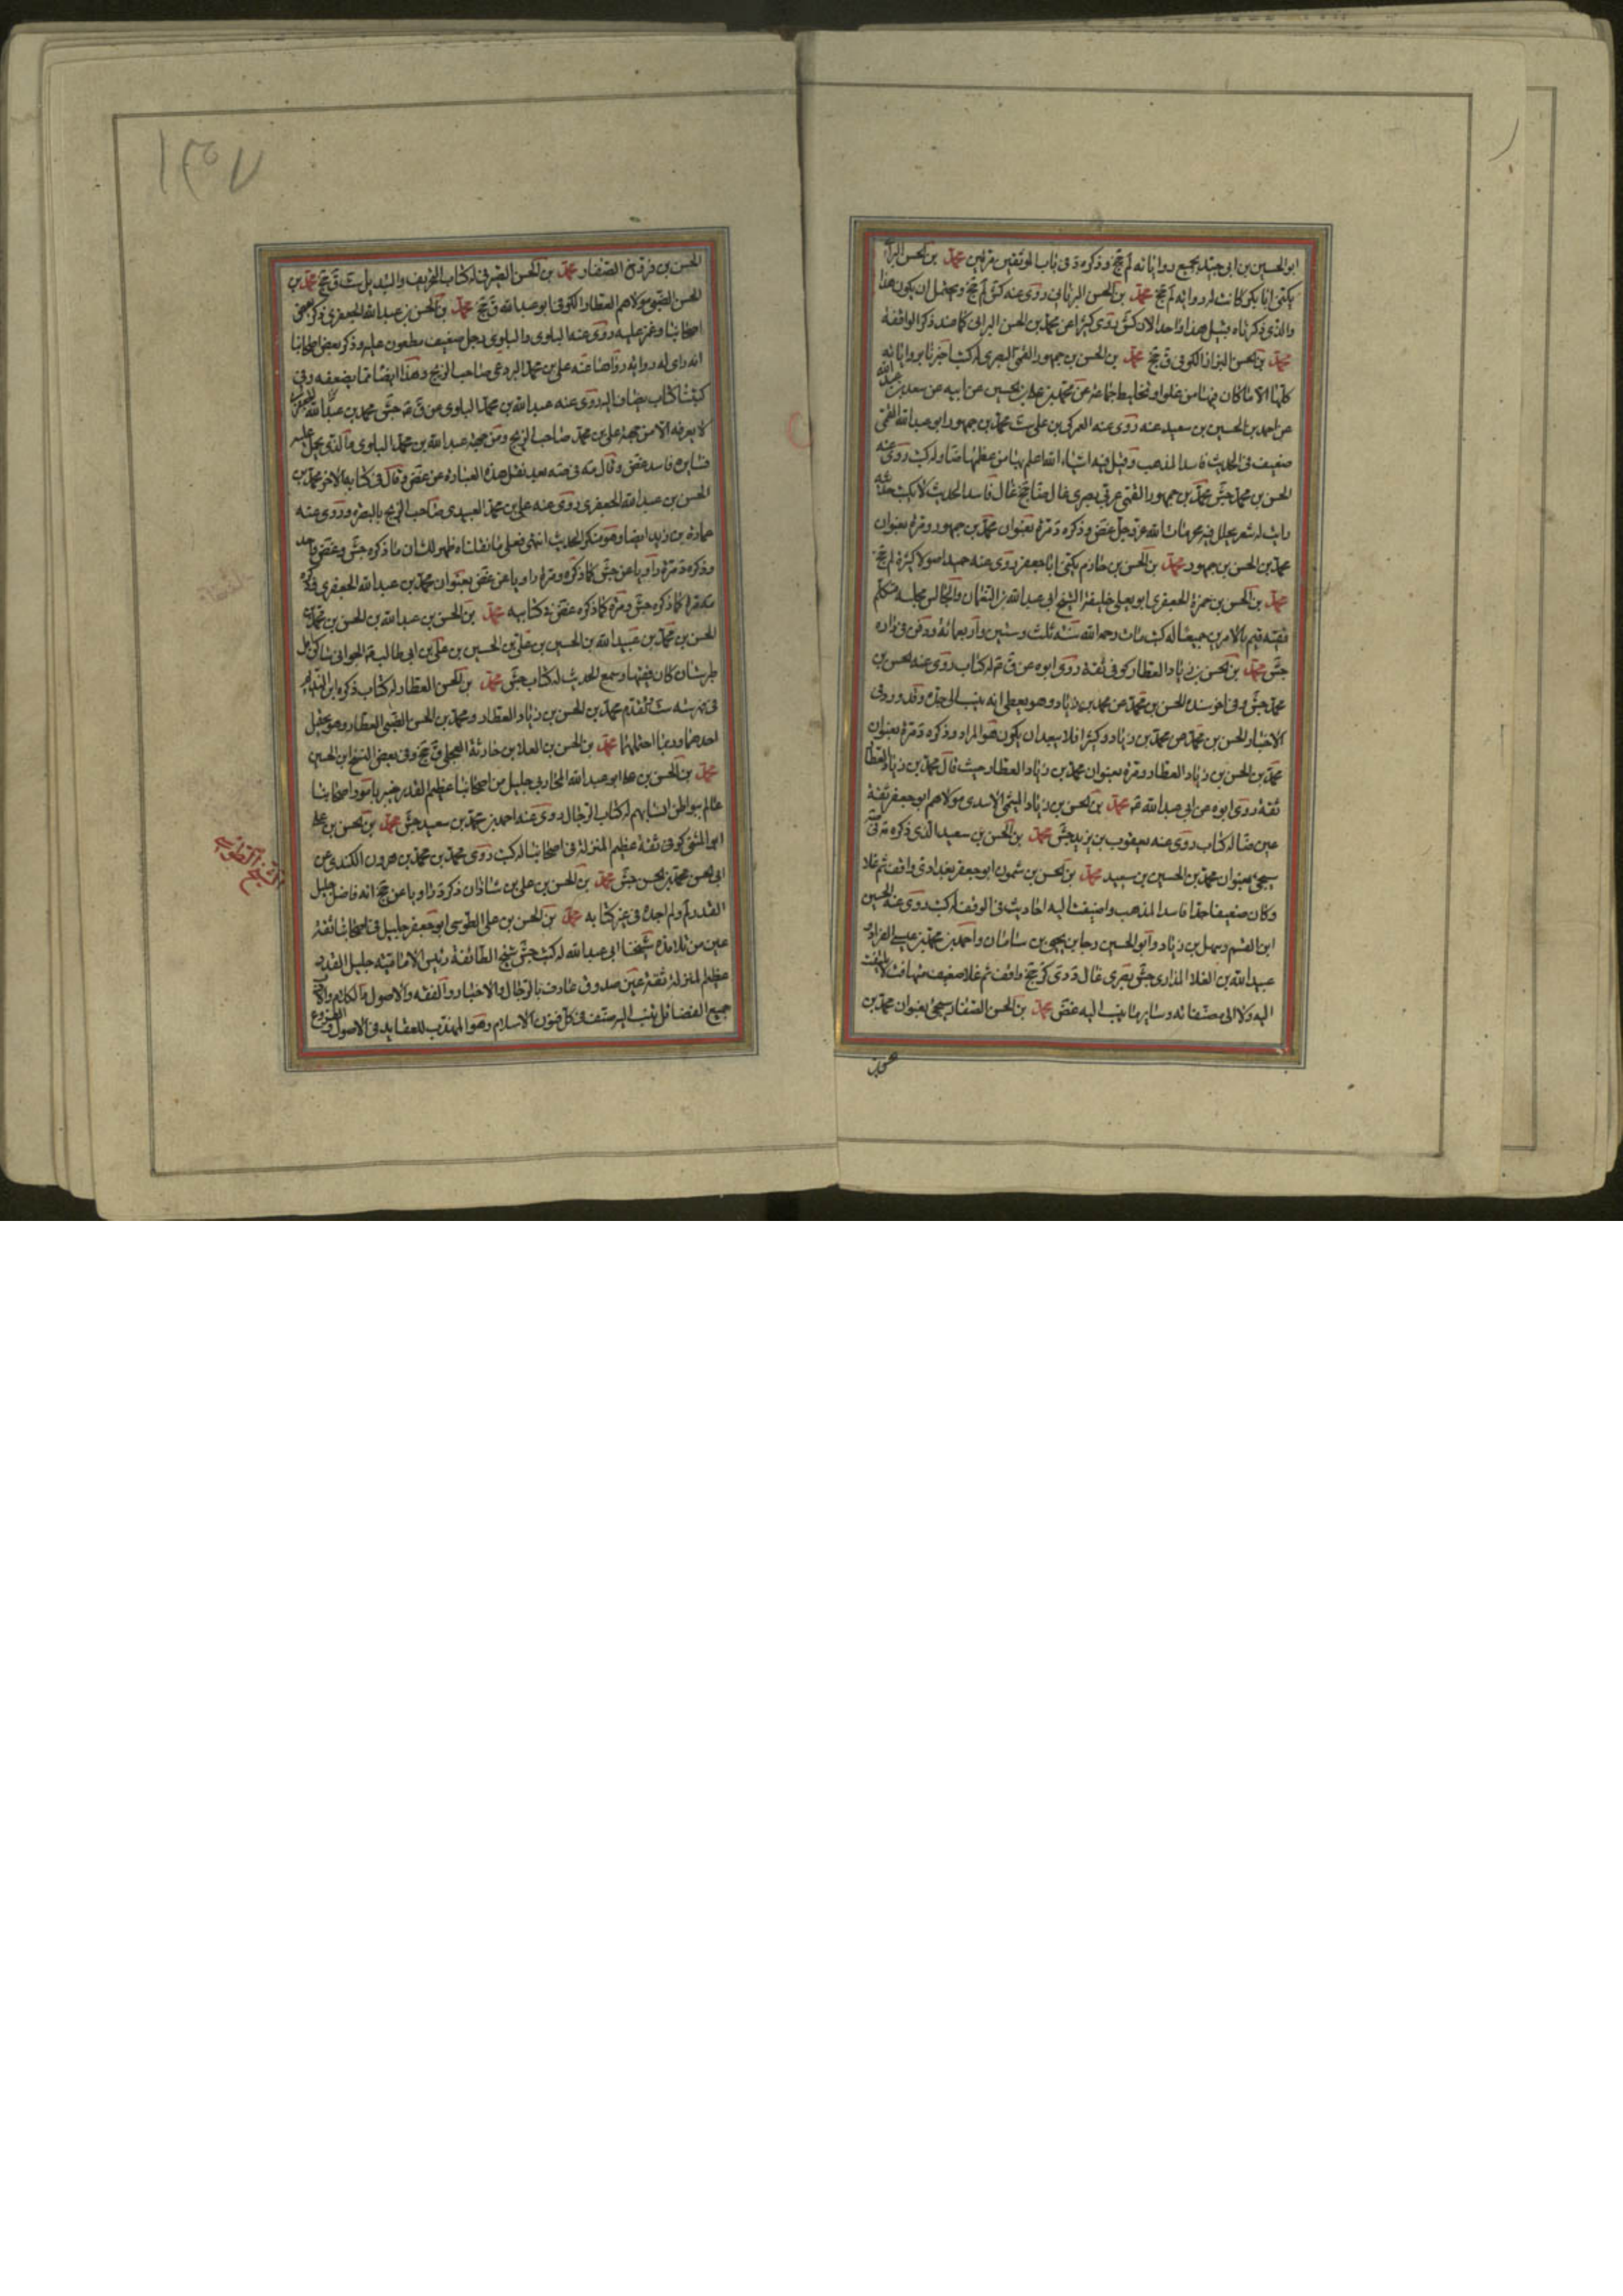 ابو الحسين بن ابى جيد بجميع رواياته لم جخ وذكره د فى باب الموثقين مرتين محمد بن الحسن البرا
يكنى ابا بكر كانت له رواية لم جخ محمد بن الحسن البرنانى روى عنه كش لم جخ ويحتمل ان يكون هذا
والذى ذكرناه قبيل هذا واحدا لان كش روى كثيرا عن محمد بن الحسن البرانى كما عند ذكر الواقفة
محمد بن الحسن البزاز الكوفى ق جخ محمد بن الحسن بن جمهور العمى البصرى له كتب اخبرنا برواياته
كلها الا ما كان فيها من غلو او تخليط جماعة عن محمد بن على بن الحسين عن ابيه عن سعد بن عبد الله
عن احمد بن الحسين بن سعيد عنه روى عنه العمركى بن على ست محمد بن جمهور ابو عبد الله العمى
ضعيف فى الحديث فاسد المذهب وقيل فيه اشياء الله اعلم بها من عظمها ضا وله كتب روى عنه
الحسن بن محمد جش محمد بن جمهور العمى عربى بصرى غال ضا جخ غال فاسد الحديث لا يكتب حديثه
رايت له شعر يحلل فيه محرمات الله عز وجل غض وذكره د مرة بعنوان محمد بن جمهور ومرة بعنوان
محمد بن الحسن بن جمهور محمد بن الحسن بن خازم يكنى ابا جعفر روى عنه حميد اصولا كثيرة لم جخ
محمد بن الحسن بن حمزة الجعفرى ابو يعلى خليفة الشيخ ابى عبد الله بن النعمان والجالس مجلسه متكلم
فقيه قيم بالامرين جميعا له كتب مات رحمه الله سنة ثلث وستين واربعمائة ودفن فى داره
جش محمد بن الحسن بن زياد العطار كوفى ثقة روى ابوه عن ق م له كتاب روى عنه الحسن بن
محمد جش وفى اخر سنده الحسن بن محمد عن محمد بن زياد وهو يعطى انه ينسب الى جده وقد ورد فى
الاخبار الحسن بن محمد عن محمد بن زياد وكثيرا فلا يبعد ان يكون هو المراد وذكره د مرة بعنوان
محمد بن الحسن بن زياد العطار ومرة بعنوان محمد بن زياد العطار حيث قال محمد بن زياد العطار
ثقة روى ابوه عن ابى عبد الله ع محمد بن الحسن بن زياد الميثمى الاسدى مولاهم ابو جعفر ثقة
عين ضا له كتاب روى عنه يعقوب بن يزيد جش محمد بن الحسن بن سعيد الذى ذكره
سيجئ بعنوان محمد بن الحسين بن سعيد محمد بن الحسن بن شمون ابو جعفر بغدادى واقف ثم غلا
وكان ضعيفا جدا فاسد المذهب واضيفت اليه احاديث فى الوقف له كتب روى عنه الحسين
ابن القسم وسهل بن زياد وابو الحسين رجا بن يحيى بن سامان واحمد بن محمد بن عيسى الغراد
عبيد الله بن العلا المذارى جش بصرى غال د دى كر جخ واقف ثم غلا ضعيف متهافت لا يلتفت
اليه ولا الى مصنفاته وساير ما ينسب اليه غض محمد بن الحسن الصفار سيجئ بعنوان محمد بن
الحسن بن فروخ الصفار محمد بن الحسن الصيرفى له كتاب التحريف والتبديل ست ق جخ محمد بن
الحسن الضبى مولاهم العطار الكوفى ابو عبد الله ق جخ محمد بن الحسن بن عبد الله الجعفرى ذكره بعض
اصحابنا وغمز عليه روى عنه البلوى والبلوى رجل ضعيف مطعون عليه وذكر بعض اصحابنا
انه راى له رواية رواها عنه على بن محمد البردعى صاحب الزنج وهذا ايضا مما يضعفه وفى
كتبنا كتاب يضاف اليه روى عنه عبد الله بن محمد البلوى عن ق م جش محمد بن عبد الله الجعفرى
لا يعرفه الا من جهة على بن محمد صاحب الزنج ومن جهة عبد الله بن محمد البلوى والذى يحمل عليه
فسايره فاسد غض وقال فيه بعد نقل هذه العبارة عن غض وقال فى كتابه الاخر محمد بن
الحسن بن عبد الله الجعفرى روى عنه على بن محمد العبيدى صاحب الزنج بالبصرة وروى عنه
عمارة بن زيد ايضا وهو منكر الحديث انتهى فعلى ما نقلناه ظهر لك ان ما ذكره جش وغض واحد
وذكره د مرة راويا عن جش كما ذكره ومرة راويا عن غض بعنوان محمد بن عبد الله الجعفرى
كما ذكره جش ومرة كما ذكره غض فى كتابيه محمد بن الحسن بن عبد الله بن الحسن بن محمد بن
الحسن بن محمد بن عبيد الله بن الحسين بن على بن الحسين بن على بن ابى طالب ع الجوانى ساكن امل
طبرستان كان فقيها وسمع الحديث له كتاب جش محمد بن الحسن العطار له كتاب ذكره ابن النديم
فى فهرسته ست تقدم محمد بن الحسن بن زياد العطار ومحمد بن الحسن الضبى العطار وهو يحتمل
احدهما وربما احتملهما محمد بن الحسن بن العلا بن حارثة العجلى ق جخ وفى بعض النسخ ابن الحسين
محمد بن الحسن بن على ابو عبد الله المحاربى جليل من اصحابنا عظيم القدر خبير بامور اصحابنا
عالم ببواطن انسابهم له كتاب الرجال روى عنه احمد بن محمد بن سعيد جش محمد بن الحسن بن على
ابو المثنى كوفى ثقة عظيم المنزلة فى اصحابنا له كتب روى محمد بن محمد بن هرون الكندى عن
ابى الحسن محمد بن الحسن جش محمد بن الحسن بن على بن شاذان ذكره د راويا عن جخ انه فاضل جليل
القدر لم ولم اجده فى غير كتابه محمد بن الحسن بن على الطوسى ابو جعفر جليل فى اصحابنا ثقة
عين من تلامذة شيخنا ابى عبد الله له كتب جش شيخ الطائفة رئيس الامامية جليل القدر
عظيم المنزلة ثقة عين صدوق عارف بالرجال والاخبار والفقه والاصول والكلام والادب
جميع الفضائل تنسب اليه صنف فى كل فنون الاسلام وهو المهذب للعقايد فى الاصول والفروع
الشيخ الطوسى